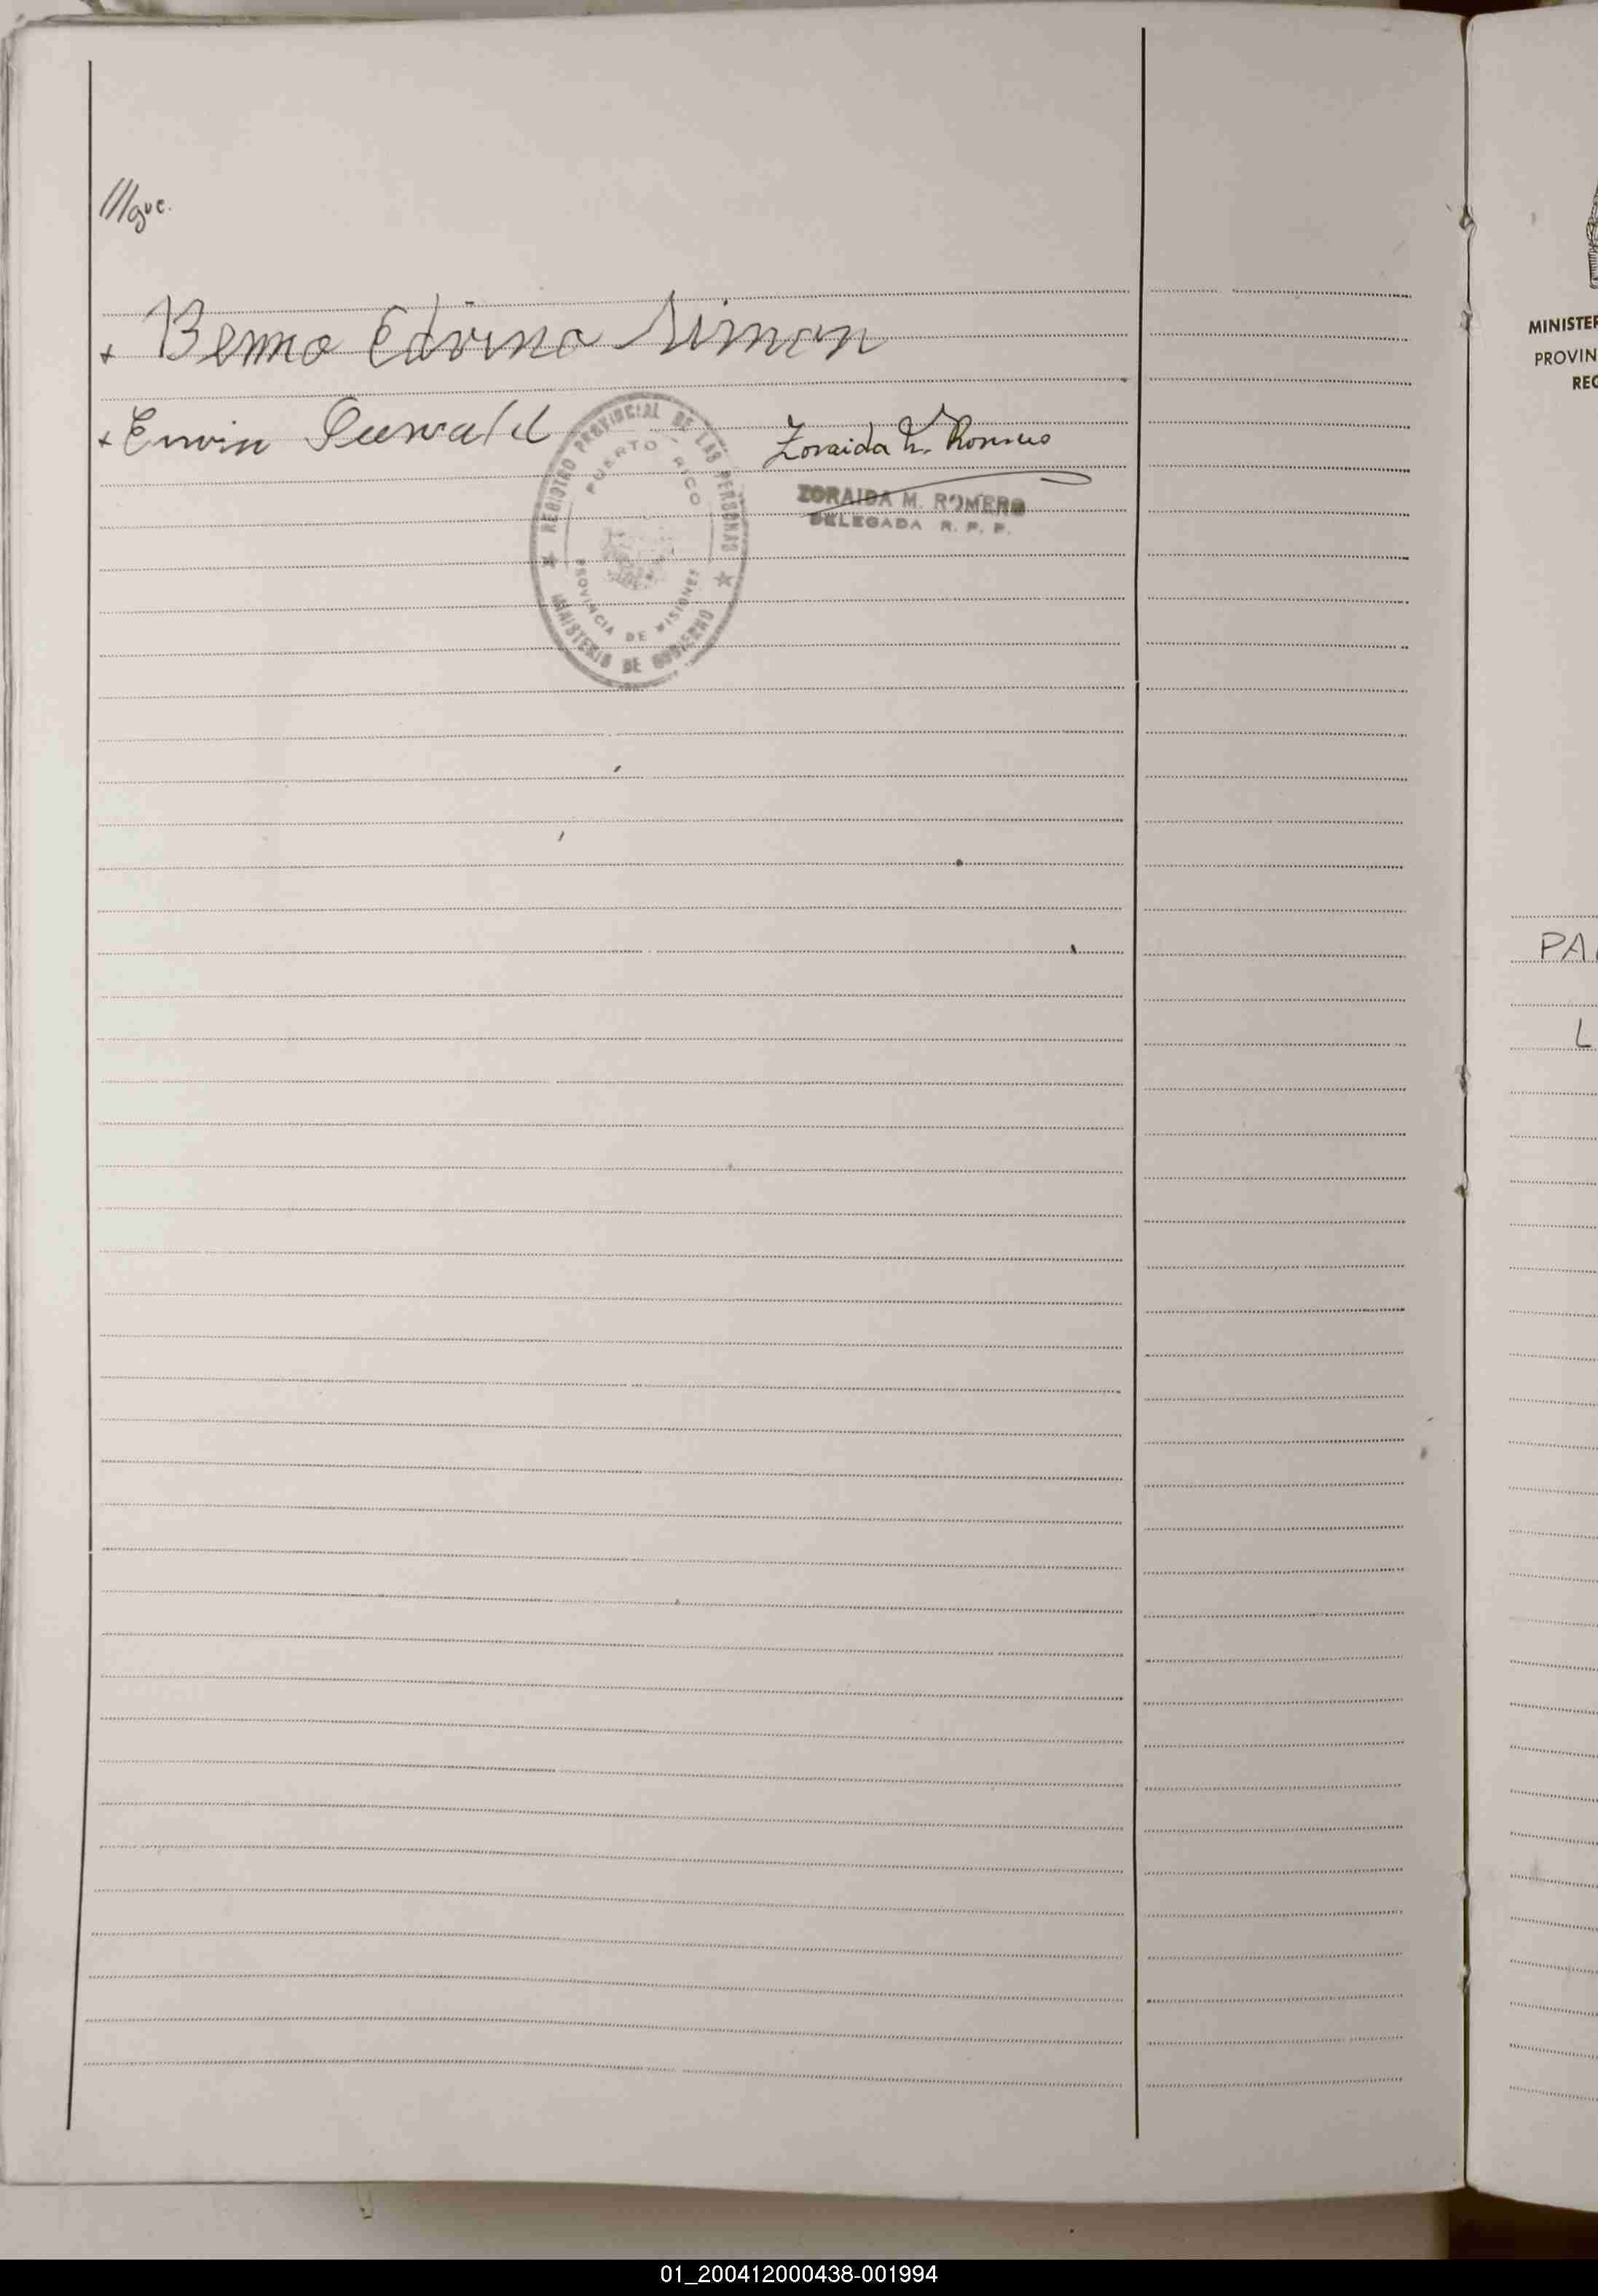 ///gue.
+ Benno Edvino Siman
+ Erwin
Zoraida M. Romero
ZORAIDA M. ROMERO
DELEGADA R. P. P.
REGISTRO PROVINCIAL DE LAS PERSONAS
PUERTO RICO
PROVINCIA DE MISIONES
MINISTERIO DE GOBIERNO
MINISTER
PROVIN
REG
PA
L
01_200412000438-001994